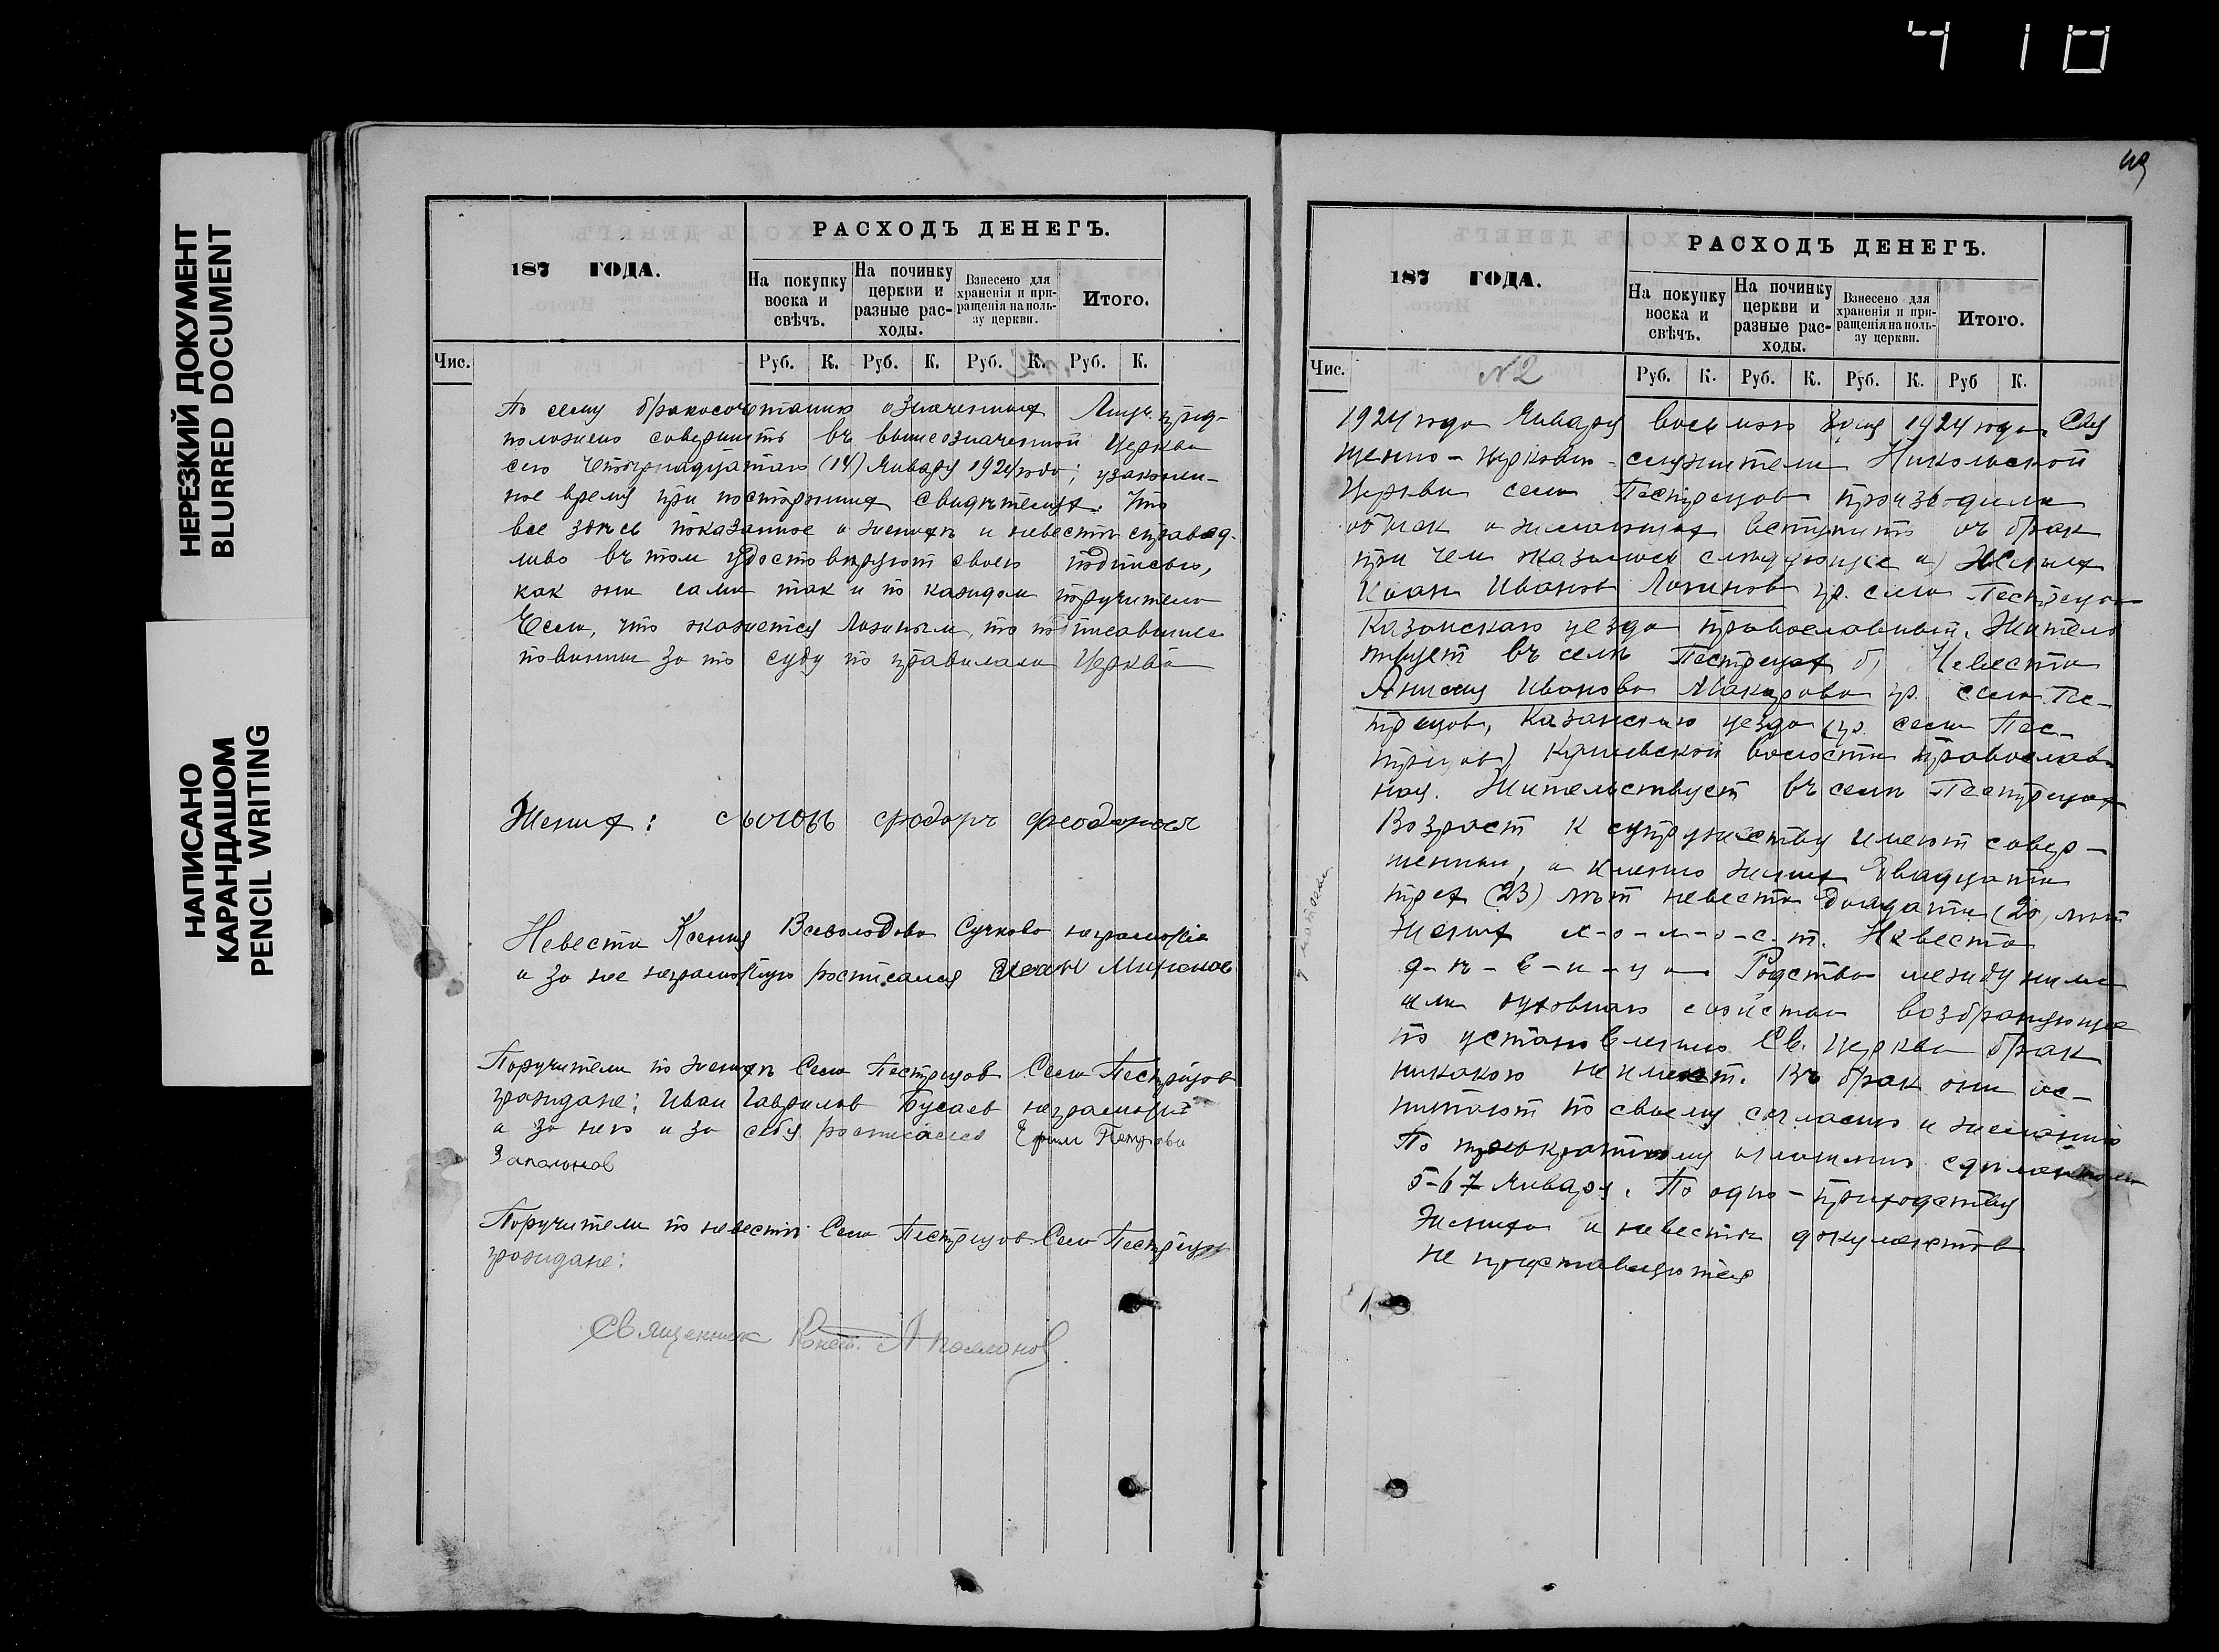 410
НЕРЕЗКИЙ ДОКУМЕНТ
BLURRED DOCUMENT
НАПИСАНО
КАРАНДАШОМ
PENCIL WRITING
187 ГОДА.
РАСХОДЪ ДЕНЕГЪ.
На покупку воска и свѣчъ.
На починку церкви и разные рас-ходы.
Взнесено для храненія и при-ращенія на поль-зу церкви.
Итого.
Чис.
Руб. К. Руб. К. Руб. К. Руб. К.
По сему бракосочетанию означенных Лицъ пред-
положено совершить въ вышеозначенной Церкви
сего Четырнадцатаго (14) Января 1924 года; узаконен-
ное время при посторонних свидѣтелях. Что
все здѣсь показанное о женихѣ и невестѣ справед-
ливо въ том удостовѣряют своею подписью,
как они сами так и по каждом поручители
Если, что окажется Ложным, то подписавшиеся
повинны за то суду по правилам Церкви
Жених: сычовъ федоръ феодоровъ
Невеста Ксения Всеволодова Сучкова неграмотная
а за нее неграмотную росписался Иван Миронов
Поручители по женихѣ Села Пестрецов Села Пестрецов
граждане: Иван Гаврилов Бусаев неграмотный
а за него и за себя росписался Ефим Петрович
Запалонов
Поручители по невестѣ Села Пестрецов Села Пестрецов
граждане:
Священник Конст. Аполлонов.
187 ГОДА.
РАСХОДЪ ДЕНЕГЪ.
На покупку воска и свѣчъ.
На починку церкви и разные рас-ходы.
Взнесено для храненія и при-ращенія на поль-зу церкви.
Итого.
Чис.
№2
Руб. К. Руб. К. Руб. К. Руб К.
1924 года Января восьмого дня 1924 года. Свя
щенно-церковно-служители Никольской
Церкви села Пестрецов производили
обыск о желающих вступить въ брак
при чем оказалось следующее а) Жених
Иван Иванов Логинов гр. села Пестрецов
Казанскаго уезда православный. Житель
ствует въ селѣ Пестрецах б) Невеста
Анисия Иванова Макарова гр. села Пе-
стрецов, Казанскаго уезда (гр. села Пес-
трецов) волости православ-
ная. Жительствует въ селѣ Пестрецах
Возраст к супружеству имеют совер-
шенный, а именно жених двадцати
трех (23) лѣт невеста двадцати (20) лѣт
Жених х-о-л-о-с-т. Невеста
д-ѣ-в-и-ц-а Родства между ними
или духовнаго свойства возбраняющаго
по установлению Св. Церкви брак
никакого не имеют. Въ брак они вс-
тупают по своему согласию и желанию
По троекратному оглашению сдѣланному
5-6 7 Января. По одно-приходству
Жениха и невесты документов
не представляются